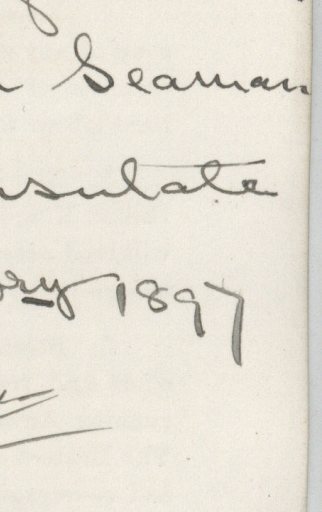 Seaman
nsulate
ry 1897